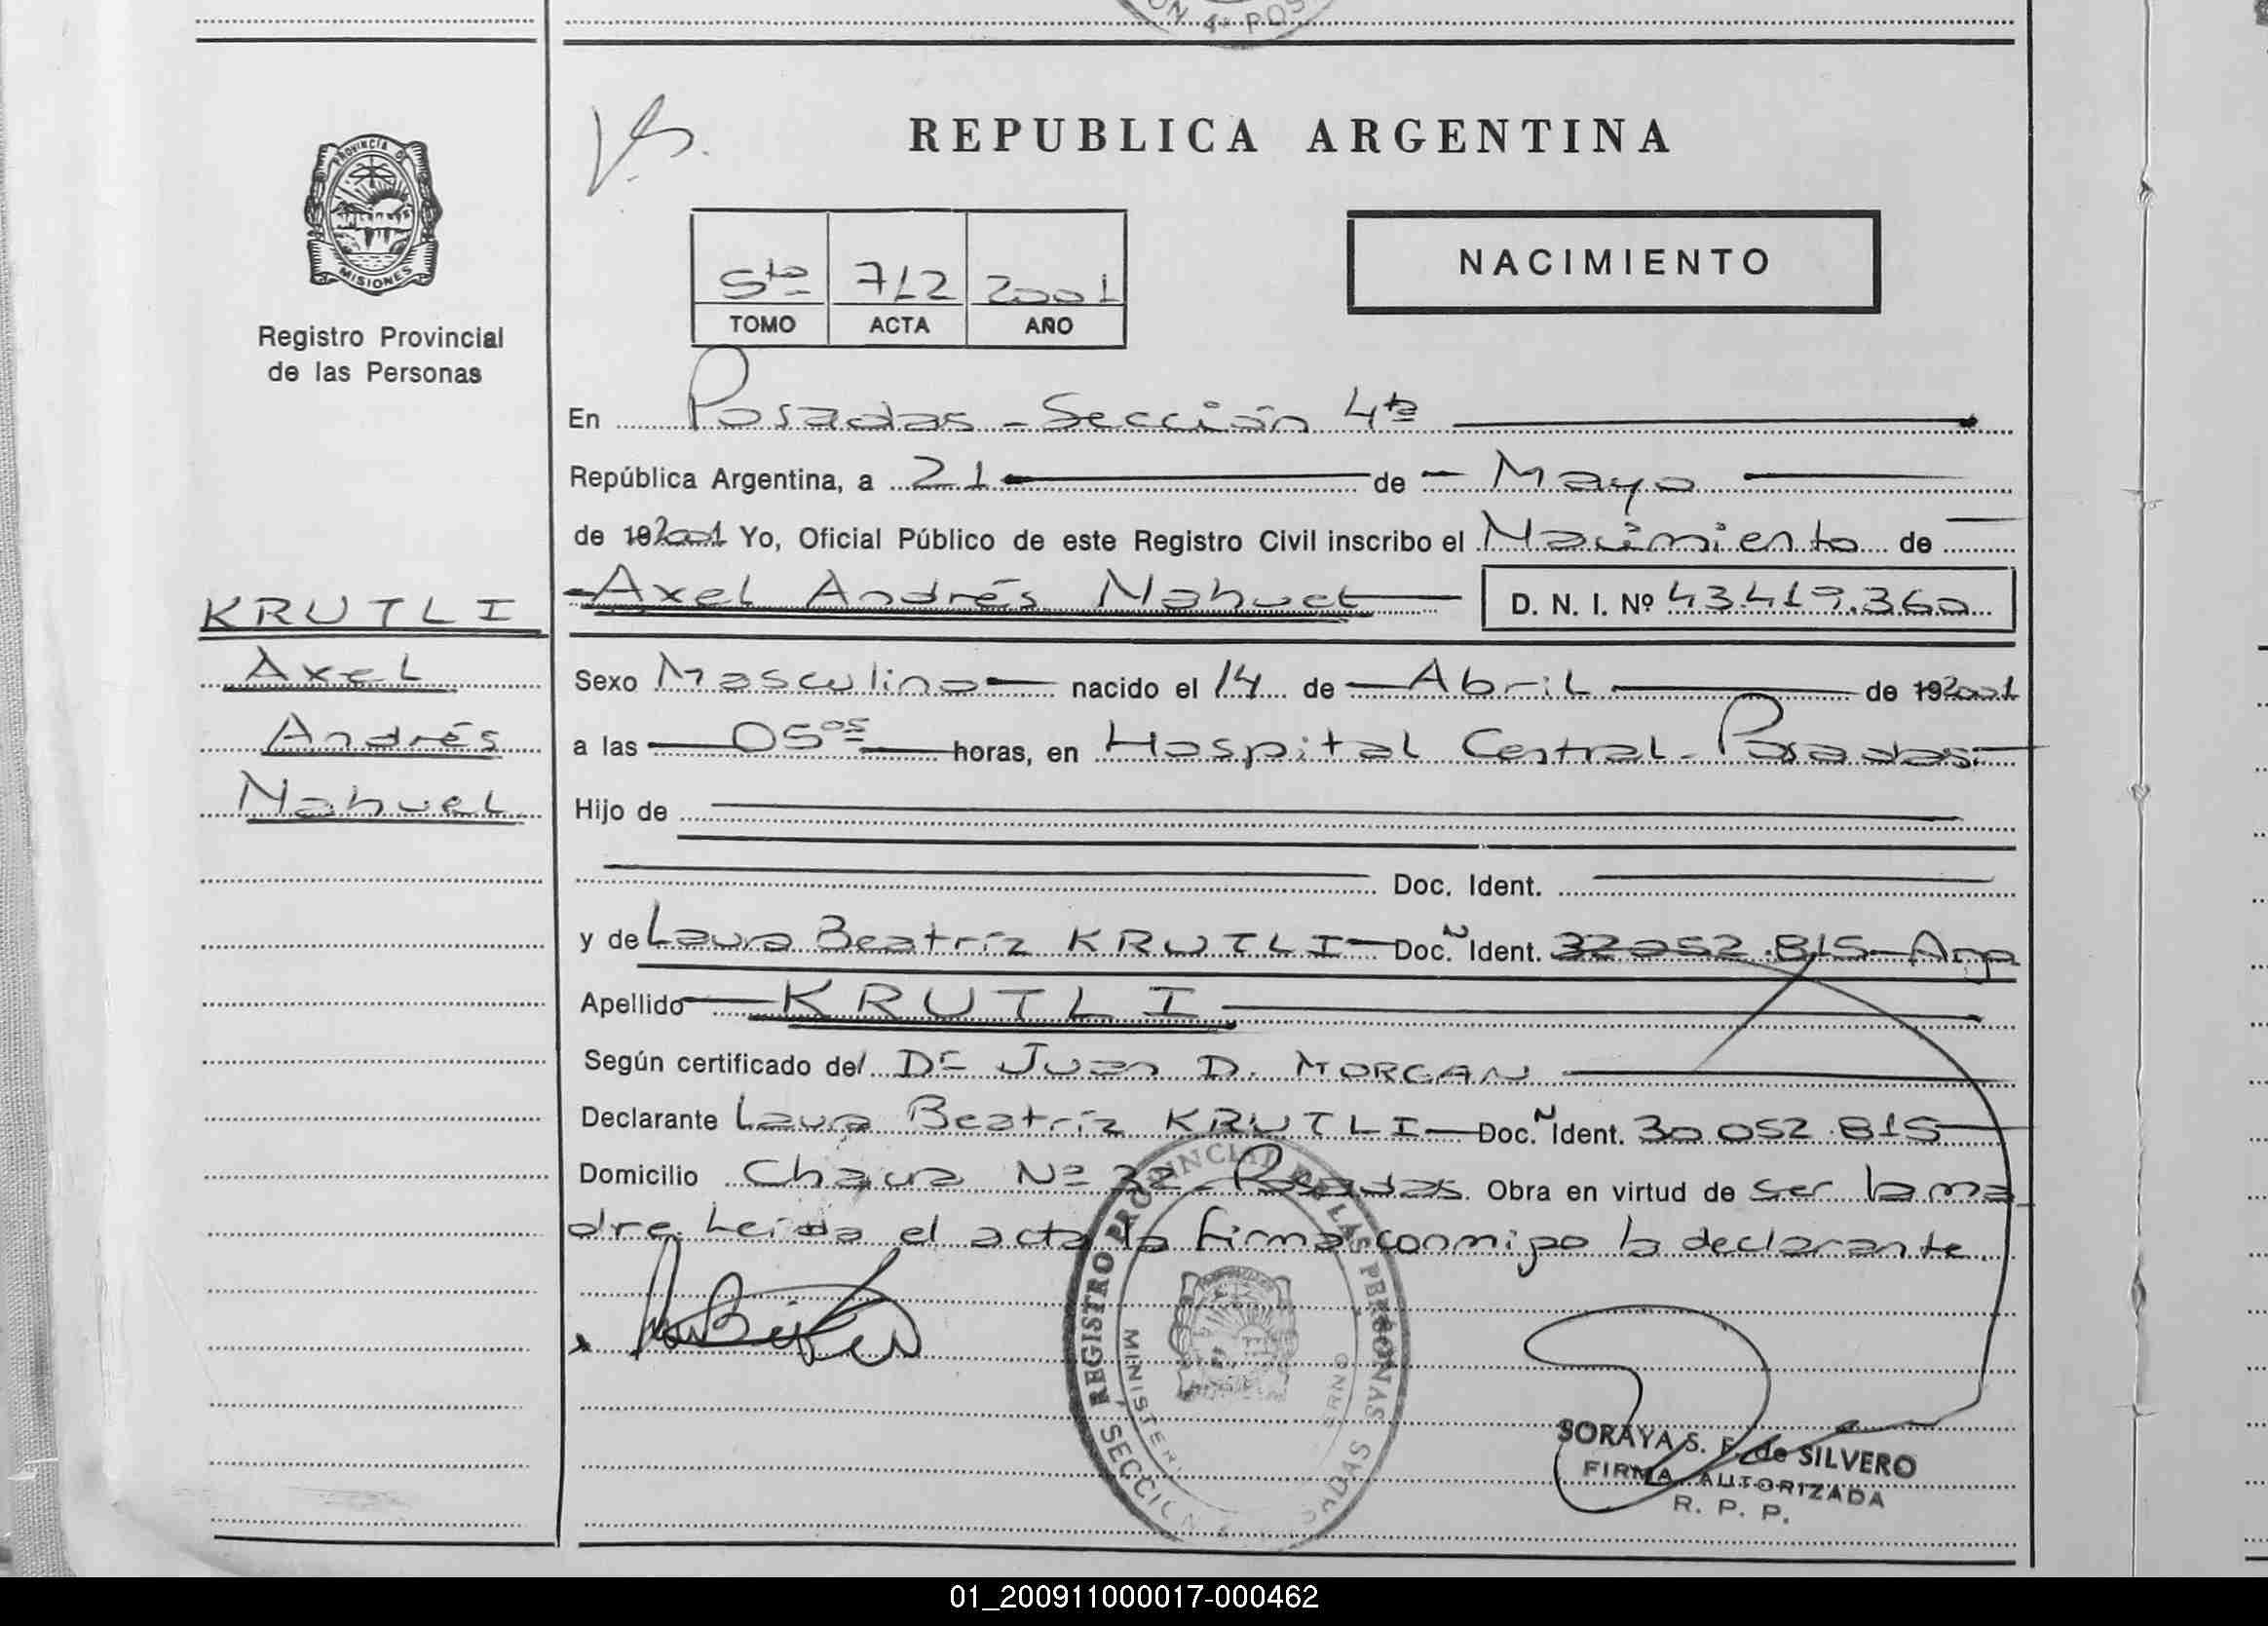 ON 4ª POS
REPUBLICA ARGENTINA
PROVINCIA D
MISIONES
Registro Provincial
de las Personas
5to 712 2001
TOMO ACTA AÑO
NACIMIENTO
En Posadas - Sección 4ta
República Argentina, a 21 de Mayo
de 19 2001 Yo, Oficial Público de este Registro Civil inscribo el Nacimiento de
Axel Andrés Nahuel D. N. I. Nº 43.419.360
KRUTLI
Axel
Andrés
Nahuel
Sexo Masculino nacido el 14 de Abril de 19 2001
a las 05 05 horas, en Hospital Central - Posadas
Hijo de
Doc. Ident.
y de Laura Beatríz KRUTLI Doc. Ident. 32 052.815 - Arg
Apellido KRUTLI
Según certificado del Dr Juan D. MORGAN
Declarante Laura Beatríz KRUTLI Doc. Ident. 30 052.815
Domicilio Nº 32 - Posadas. Obra en virtud de ser la ma
dre. Leída el acta la firma conmigo la declarante.
REGISTRO PROVINCIAL DE LAS PERSONAS
SORAYA S. F. de SILVERO
FIRMA AUTORIZADA
R. P. P.
01_200911000017-000462